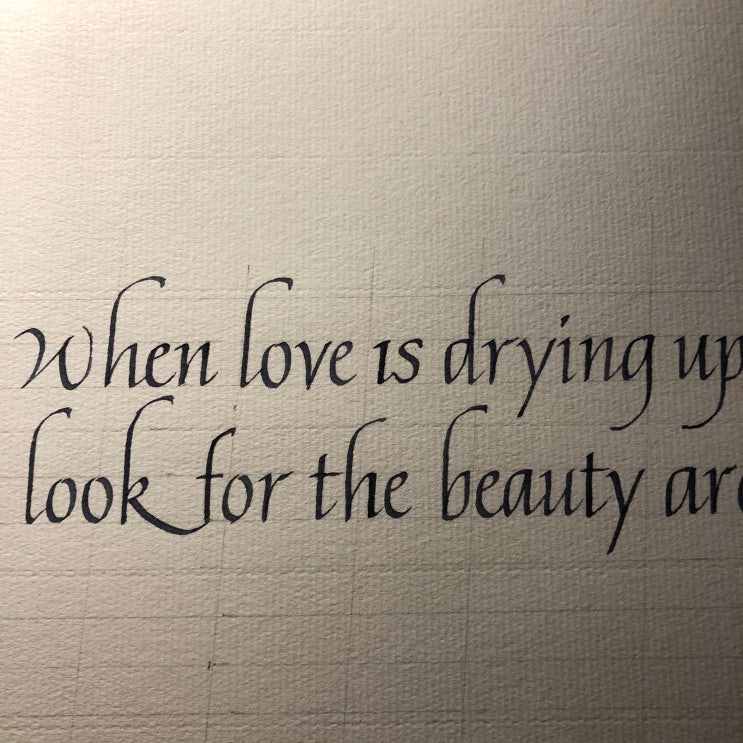 When love is drying up
look for the beauty